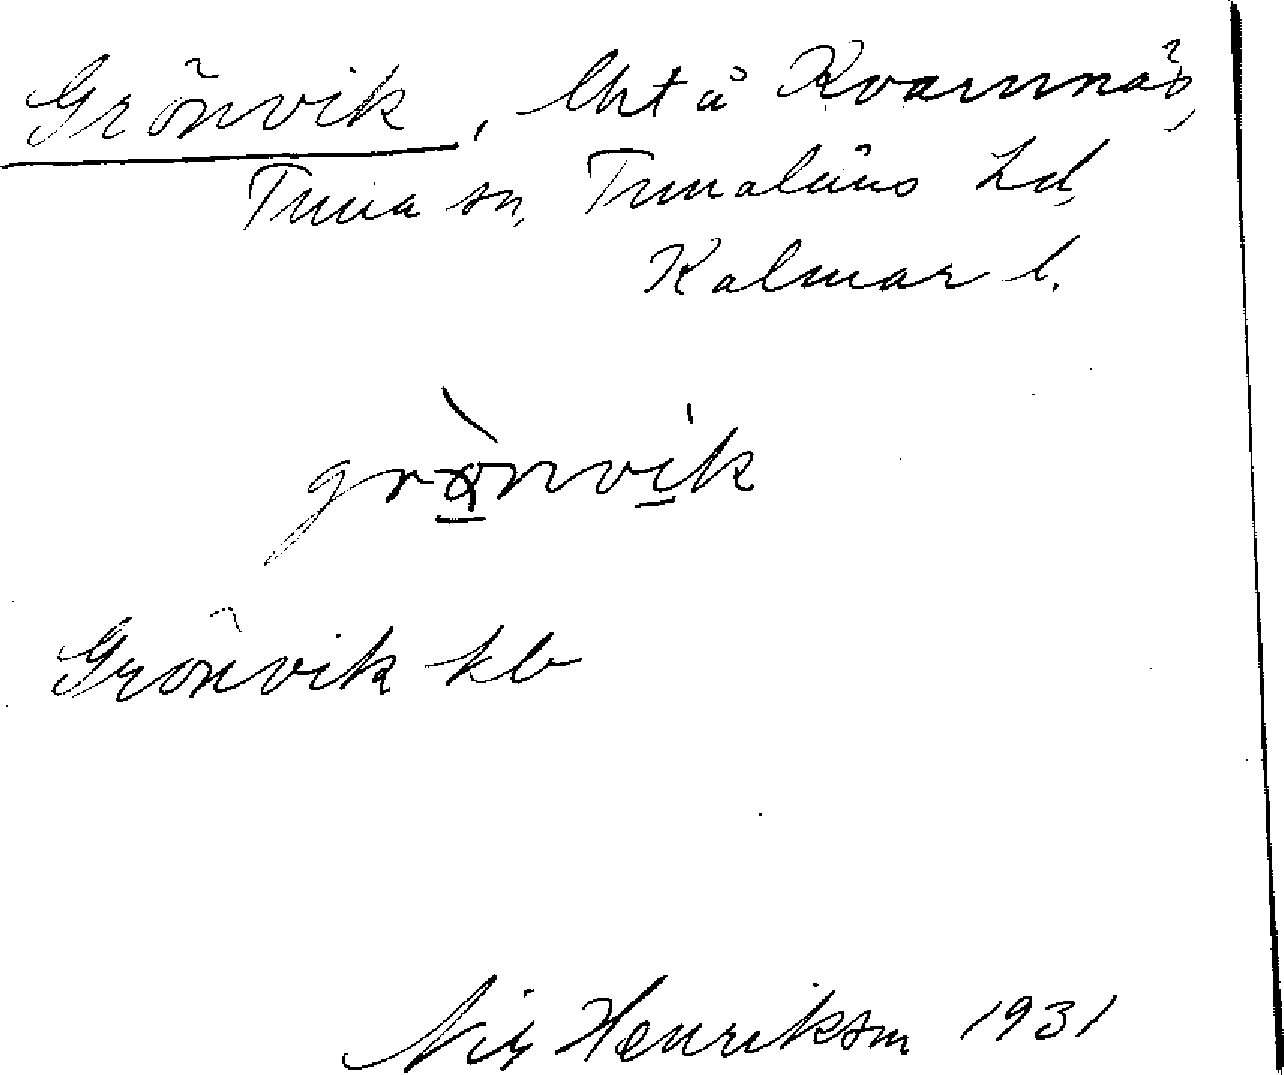 Grönvik, lht å Kvarnnäs,
Tuna sn, Tunaläns hd,
Kalmar l.
grø̀nvik
Grönvik kb
Nils Henrikson 1931